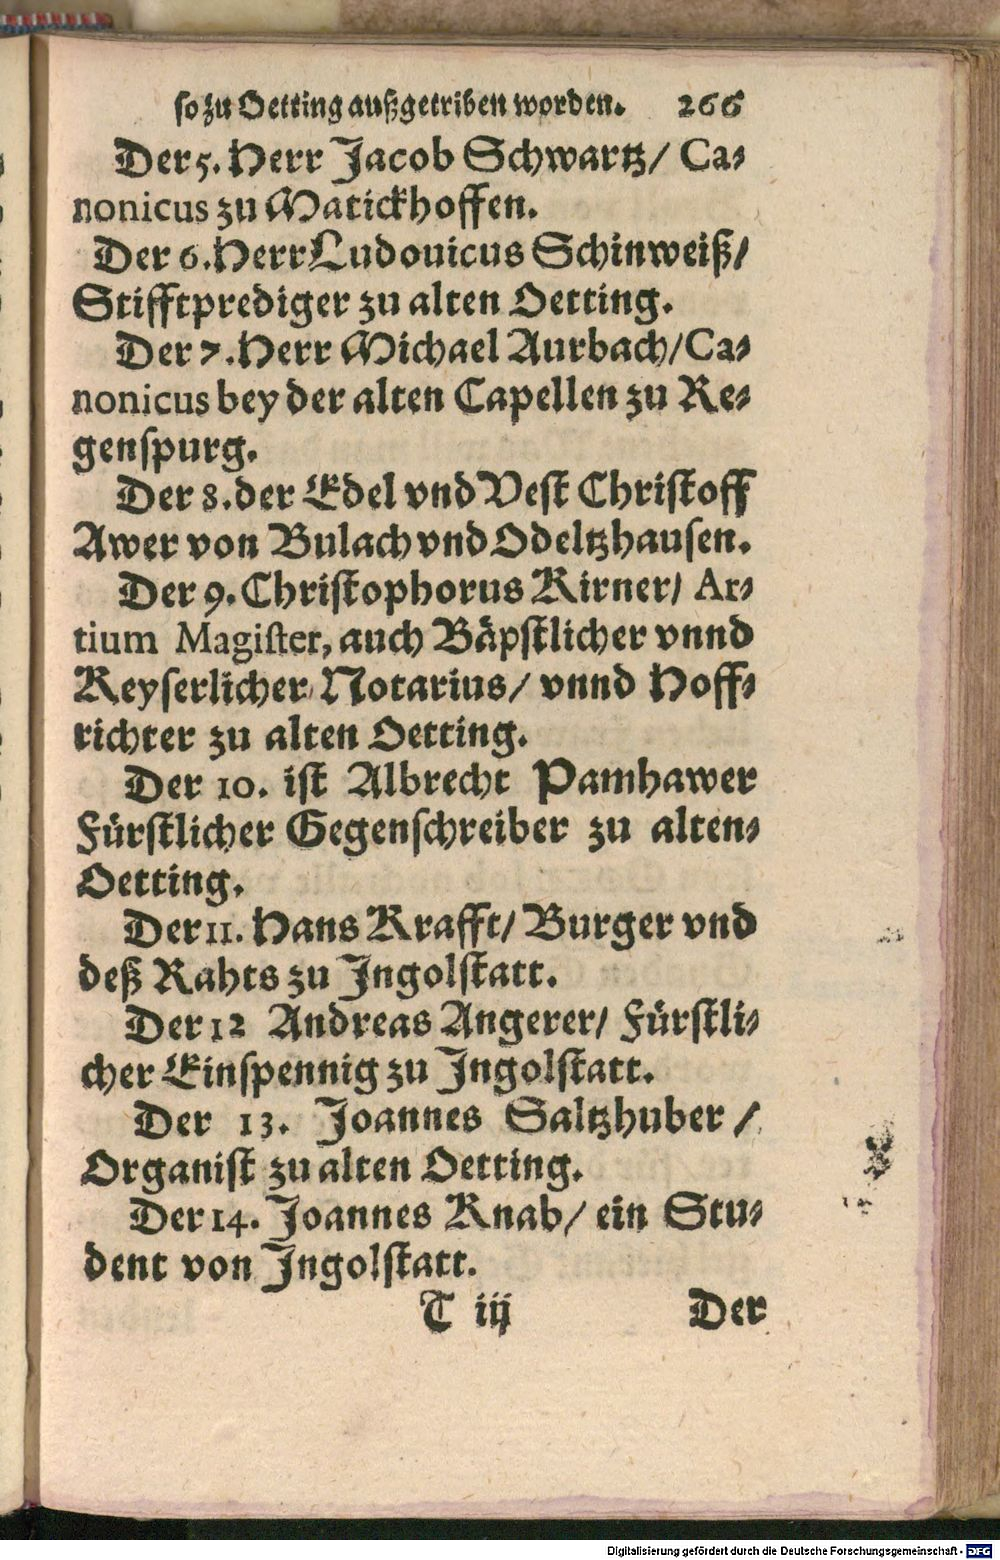 so zu Oetting außgetriben worden. 266
Der 5. Herr Jacob Schwartz/ Ca-
nonicus zu Matickhoffen.
Der 6. Herr Ludouicus Schinweiß/
Stifftprediger zu alten Oetting.
Der 7. Herr Michael Aurbach/ Ca-
nonicus bey der alten Capellen zu Re-
genspurg.
Der 8. der Edel vnd Vest Christoff
Awer von Bulach vnd Odeltzhausen.
Der 9. Christophorus Kirner/ Ar-
tium Magister, auch Bäpstlicher vnnd
Keyserlicher Notarius/ vnnd Hoff-
richter zu alten Oetting.
Der 10. ist Albrecht Pamhawer
Fürstlicher Gegenschreiber zu alten-
Oetting.
Der 11. Hans Krafft/ Burger vnd
deß Rahts zu Ingolstatt.
Der 12 Andreas Angerer/ Fürstli-
cher Einspennig zu Ingolstatt.
Der 13. Joannes Saltzhuber/
Organist zu alten Oetting.
Der 14. Joannes Knab/ ein Stu-
dent von Ingolstatt.
T iij Der
Digitalisierung gefördert durch die Deutsche Forschungsgemeinschaft - DFG